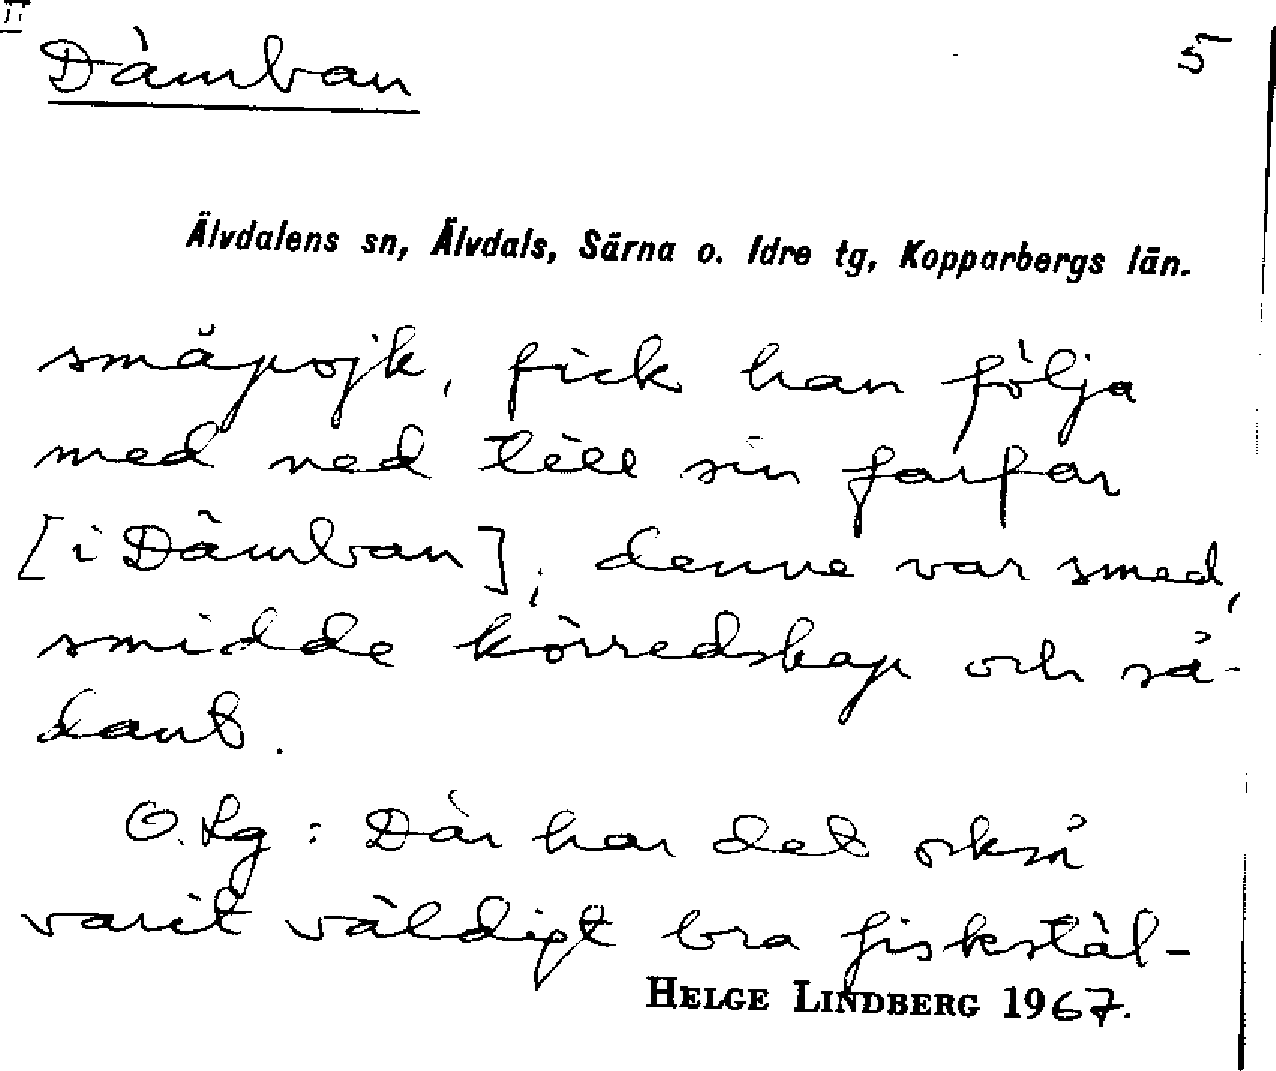 Dämban 5
Älvdalens sn, Älvdals, Särna o. Idre tg, Kopparbergs län.
småpojk, fick han följa
med ned till sin farfar
[i Dämban]; denne var smed,
smidde körredskap och så-
dant.
O. Lg: Där har det också
varit väldigt bra fiskstäl-
HELGE LINDBERG 1967.